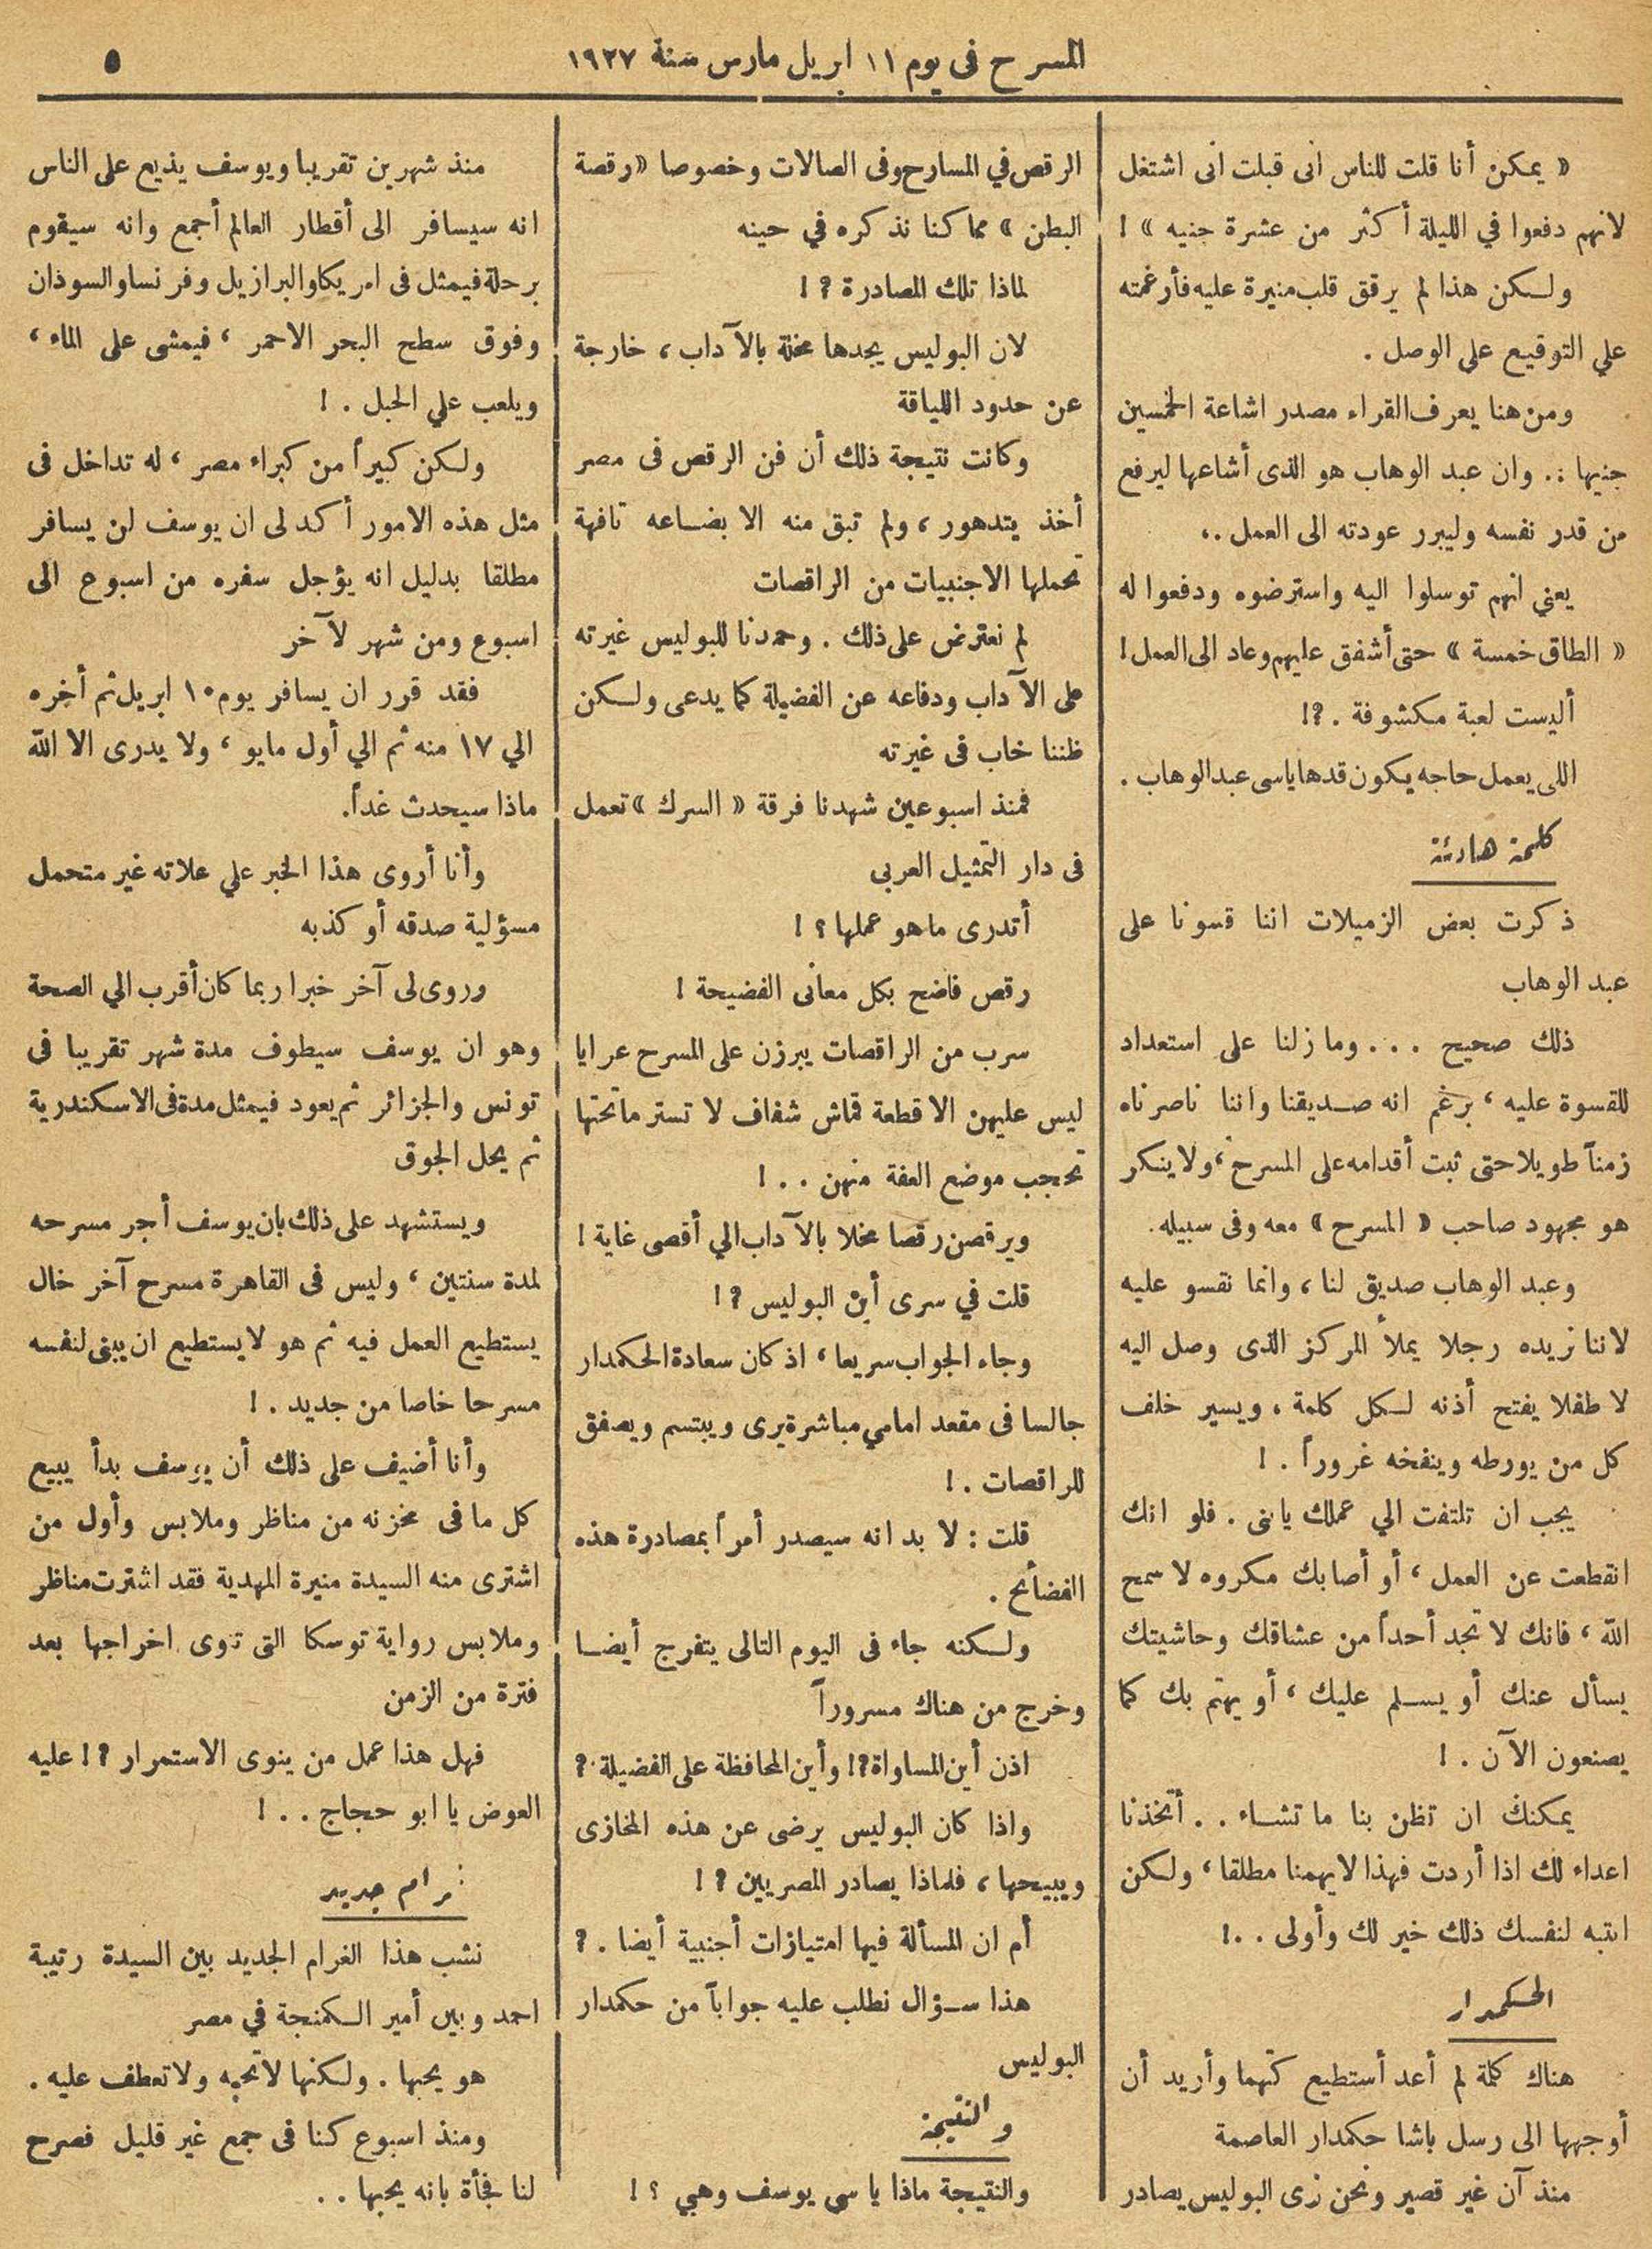 المسرح فى يوم ١١ ابريل مارس سنة ١٩٢٧
٥
« يمكن أنا قلت للناس انى قبلت انى اشتغل
لانهم دفعوا في الليلة أكثر من عشرة جنيه » !
ولكن هذا لم يرقق قلب منيرة عليه فأرغمته
علي التوقيع على الوصل .
ومن هنا يعرف القراء مصدر اشاعة الخمسين
جنيها .. وان عبد الوهاب هو الذى أشاعها ليرفع
من قدر نفسه وليبرر عودته الى العمل ..
يعني انهم توسلوا اليه واسترضوه ودفعوا له
« الطاق خمسة » حتى أشفق عليهم وعاد الى العمل !
أليست لعبة مكشوفة . ?!
اللى يعمل حاجه يكون قدها ياسى عبد الوهاب .
كلمة هادئة
ذكرت بعض الزميلات اننا قسونا على
عبد الوهاب
ذلك صحيح ... وما زلنا على استعداد
للقسوة عليه ، برغم انه صديقنا واننا ناصرناه
زمنآ طويلا حتى ثبت أقدامه على المسرح ، ولا ينكر
هو مجهود صاحب « المسرح » معه وفى سبيله .
وعبد الوهاب صديق لنا ، وانما نقسو عليه
لاننا نريده رجلا يملأ المركز الذى وصل اليه
لا طفلا يفتح أذنه لكل كلمة ، ويسير خلف
كل من يورطه وينفخه غروراً . !
يجب ان تلتفت الي عملك يابنى . فلو انك
انقطعت عن العمل ، أو أصابك مكروه لا سمح
الله ، فانك لا تجد أحداً من عشاقك وحاشيتك
يسأل عنك أو يسلم عليك ، أو يهتم بك كما
يصنعون الآن . !
يمكنك ان تظن بنا ما تشاء .. أتخذنا
اعداء لك اذا أردت فهذا لايهمنا مطلقا ، ولكن
انتبه لنفسك ذلك خير لك وأولى . . !
الحكمدار
هناك كلمة لم أعد أستطيع كتمها وأريد أن
أوجهها الى رسل باشا حكمدار العاصمة
منذ آن غير قصير ونحن نرى البوليس يصادر
الرقص في المسارح وفى الصالات وخصوصا « رقصة
البطن » مما كنا نذكره في حينه
لماذا تلك المصادرة ? !
لان البوليس يجدها مخلة بالآداب ، خارجة
عن حدود اللياقة
وكانت نتيجة ذلك أن فن الرقص فى مصر
أخذ يتدهور ، ولم تبق منه الا بضاعه تافهة
تحملها الاجنبيات من الراقصات
لم نعترض على ذلك . وحمدنا للبوليس غيرته
على الآداب ودفاعه عن الفضيلة كما يدعى ولكن
ظننا خاب فى غيرته
فمنذ اسبوعين شهدنا فرقة « السرك » تعمل
فى دار التمثيل العربى
أتدرى ماهو عملها ؟ !
رقص فاضح بكل معانى الفضيحة !
سرب من الراقصات يبرزن على المسرح عرايا
ليس عليهن الا قطعة قماش شفاف لا تستر ماتحتها
تحجب موضع العفة منهن . . !
ويرقصن رقصا مخلا بالآداب الي أقصى غاية !
قلت في سرى أين البوليس ? !
وجاء الجواب سريعا ، اذ كان سعادة الحكمدار
جالسا فى مقعد امامي مباشرة يرى ويبتسم ويصفق
للراقصات . !
قلت : لا بد انه سيصدر أمراً بمصادرة هذه
الفضأئح .
ولكنه جاء فى اليوم التالى يتفرج أيضا
وخرج من هناك مسروراً
اذن أين المساواة ?! وأين المحافظة على الفضيلة ?
واذا كان البوليس يرضى عن هذه المخازى
ويبيحها ، فلماذا يصادر المصريين ? !
أم ان المسألة فيها امتيازات أجنبية أيضا . ?
هذا سؤال نطلب عليه جوابآ من حكمدار
البوليس
والنتيجة
والنتيجة ماذا يا سى يوسف وهبي ؟ !
منذ شهرين تقريبا ويوسف يذيع على الناس
انه سيسافر الى أقطار العالم أجمع وانه سيقوم
برحلة فيمثل فى امريكا والبرازيل وفرنسا والسوذان
وفوق سطح البحر الاحمر ، فيمشى على الماء ،
ويلعب علي الحبل . !
ولكن كبيراً من كبراء مصر ، له تداخل فى
مثل هذه الامور أكد لى ان يوسف لن يسافر
مطلقا بدليل انه يؤجل سفره من اسبوع الى
اسبوع ومن شهر لآخر
فقد قرر ان يسافر يوم ١٠ ابريل ثم أخره
الي ١٧ منه ثم الي أول مايو ، ولا يدرى الا الله
ماذا سيحدث غداً.
وأنا أروى هذا الخبر علي علاته غير متحمل
مسؤلية صدقه أو كذبه
وروى لى آخر خبرا ربما كان أقرب الي الصحة
وهو ان يوسف سيطوف مدة شهر تقريبا فى
تونس والجزائر ثم يعود فيمثل مدة فى الاسكندرية
ثم يحل الجوق
ويستشهد على ذلك بان يوسف أجر مسرحه
لمدة سنتين ، وليس فى القاهرة مسرح آخر خال
يستطيع العمل فيه ثم هو لا يستطيع ان يبنى لنفسه
مسرحا خاصا من جديد . !
وأنا أضيف على ذلك أن يوسف بدأ يبيع
كل ما فى مخزنه من مناظر وملابس وأول من
اشترى منه السيدة منيرة المهدية فقد اشترت مناظر
وملابس رواية توسكا التى تنوى اخراجها بعد
فترة من الزمن
فهل هذا عمل من ينوى الاستمرار ? ! عليه
العوض يا ابو حجاج . . !
غرام جديد
نشب هذا الغرام الجديد بين السيدة رتيبة
احمد وبين أمير الكمنجة في مصر
هو يحبها . ولكنها لاتحبه ولا تعطف عليه .
ومنذ اسبوع كنا فى جمع غير قليل فصرح
لنا فجأة بانه يحبها . .